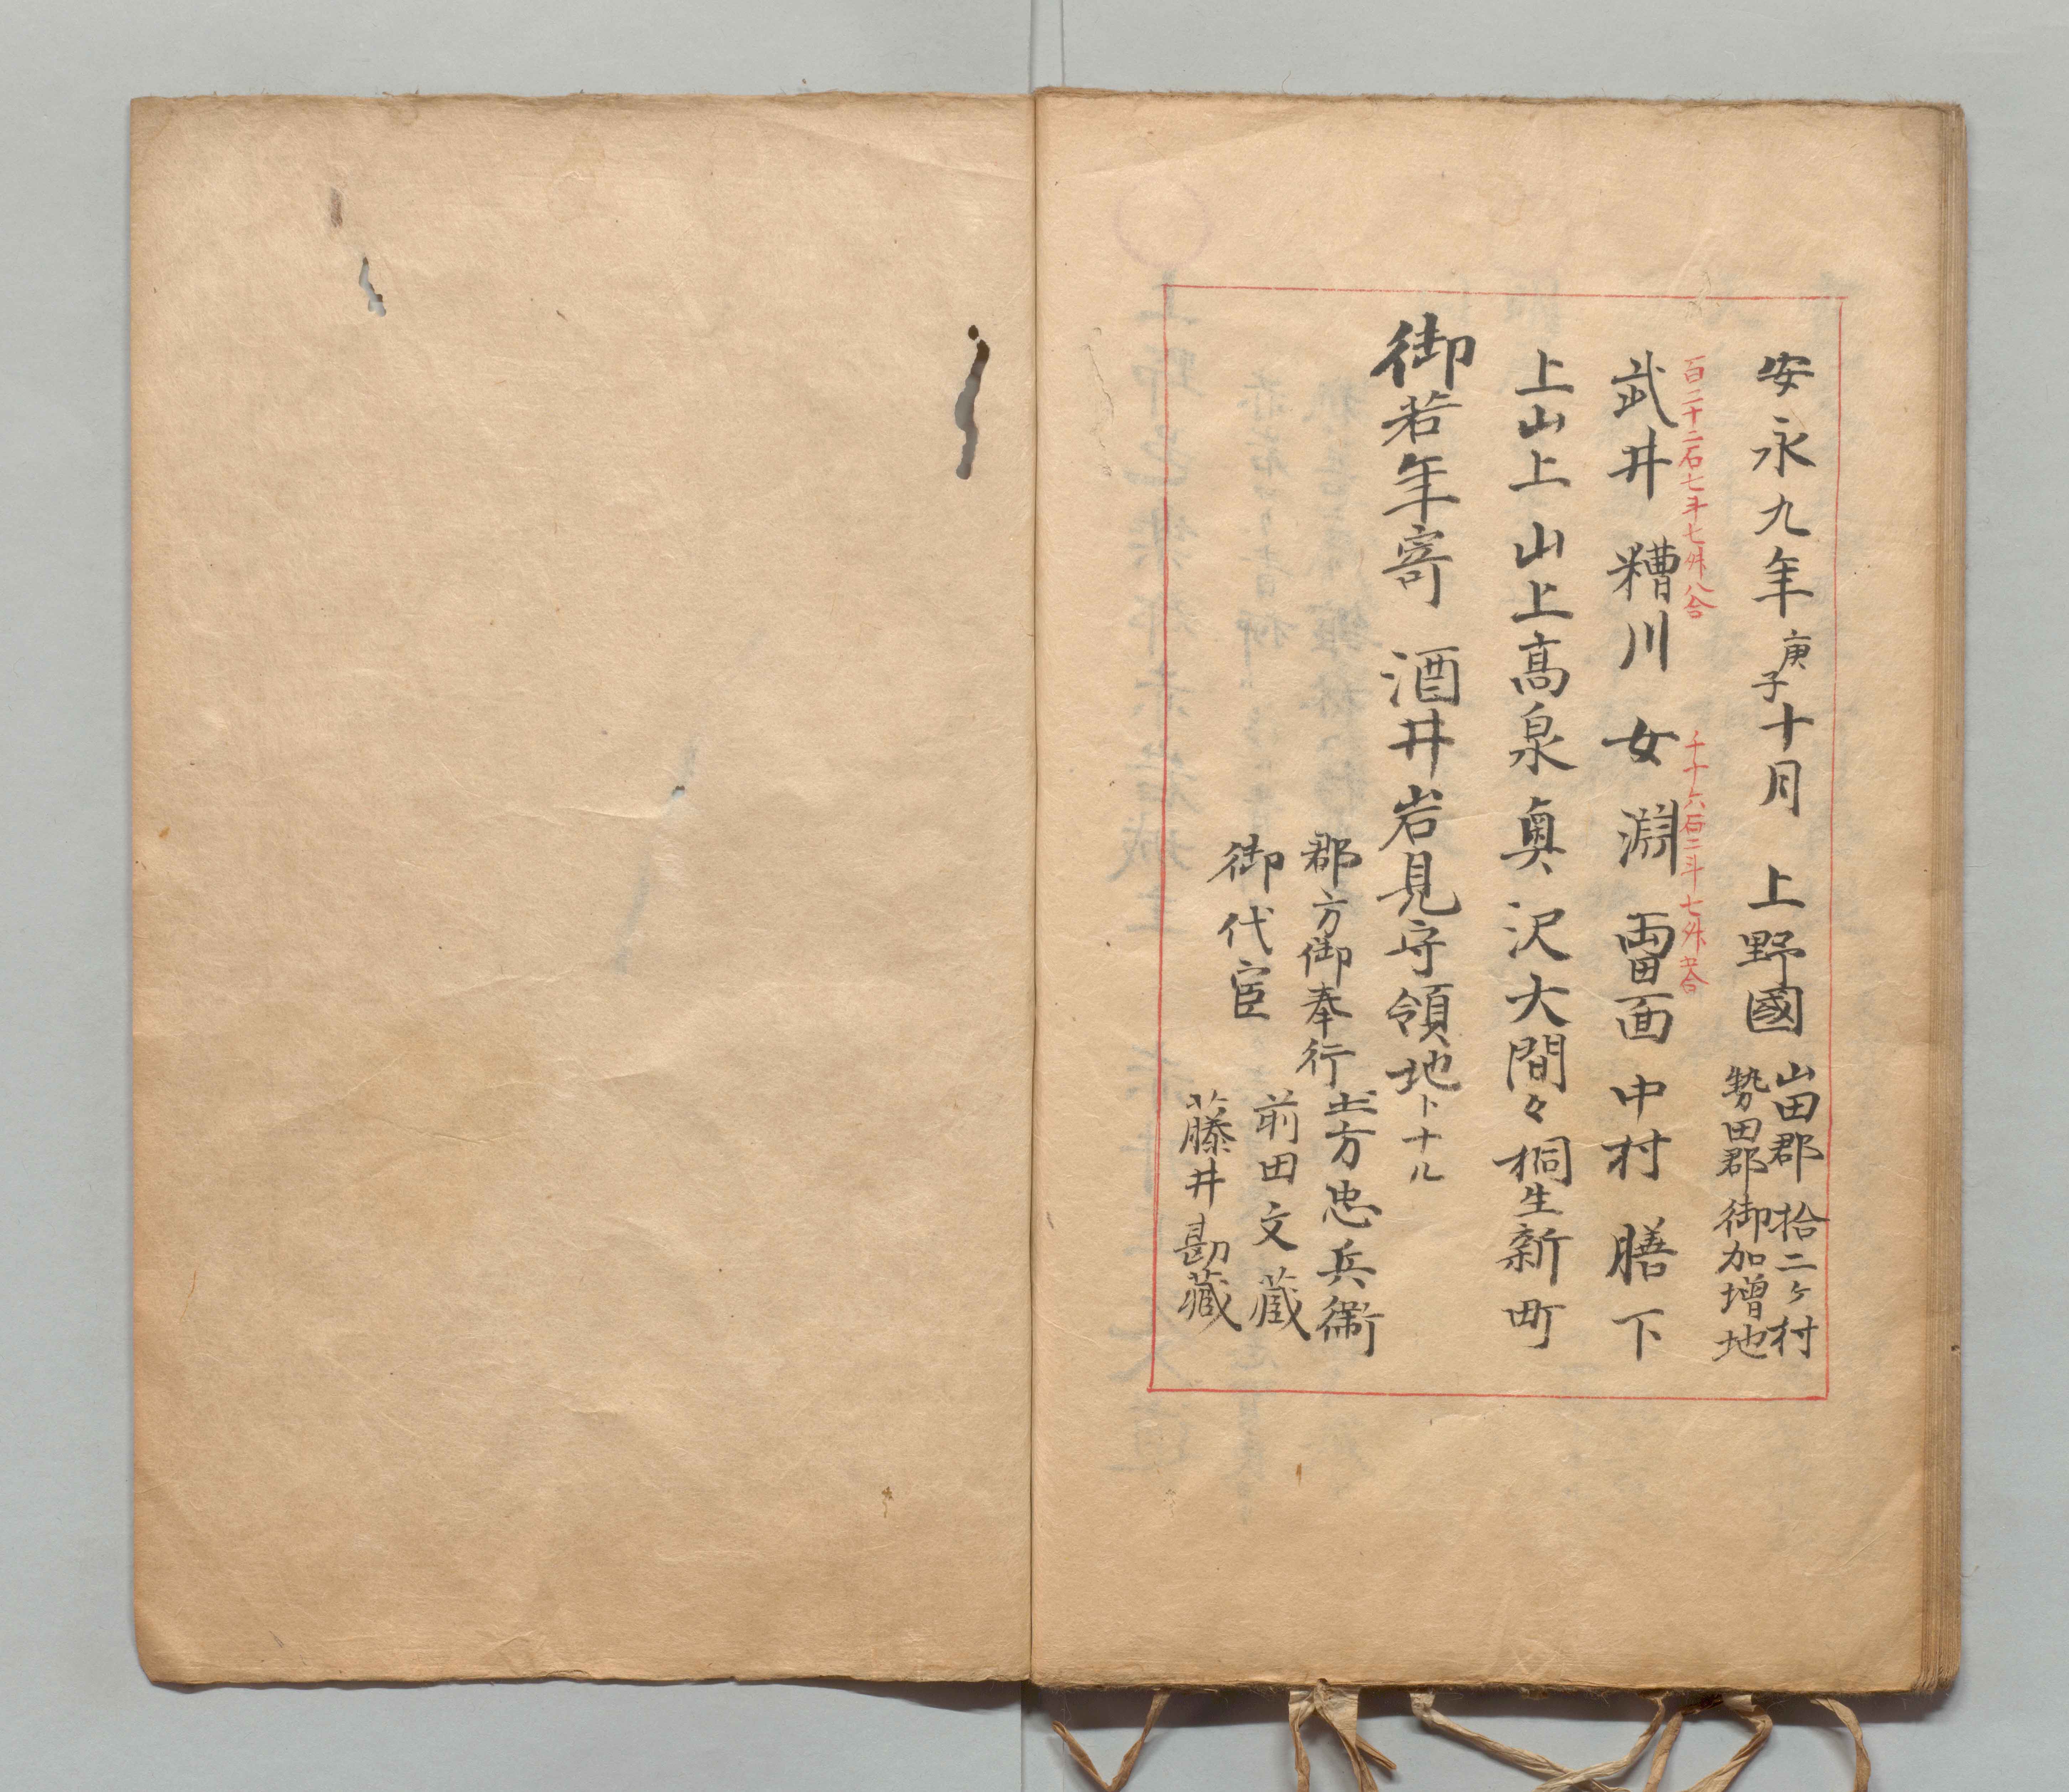 安永九年庚子十月　上野國　山田郡　拾二ケ村
勢田郡　御加増地
百二十二石七斗七升八合
千十六石二斗七升
武井　糟川　女淵　雷面　中村　膳　下
上山上　山上　高泉　奥沢　大間々　桐生新町
御若年寄　酒井岩見守領地トナル
郡方御奉行　土方忠兵衛
御代官　前田文蔵
藤井勘藏